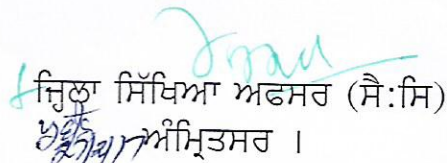 ਜ਼ਿਲ੍ਹਾ ਸਿੱਖਿਆ ਅਫਸਰ (ਸੈ:ਸਿ)
ਅੰਮ੍ਰਿਤਸਰ ।